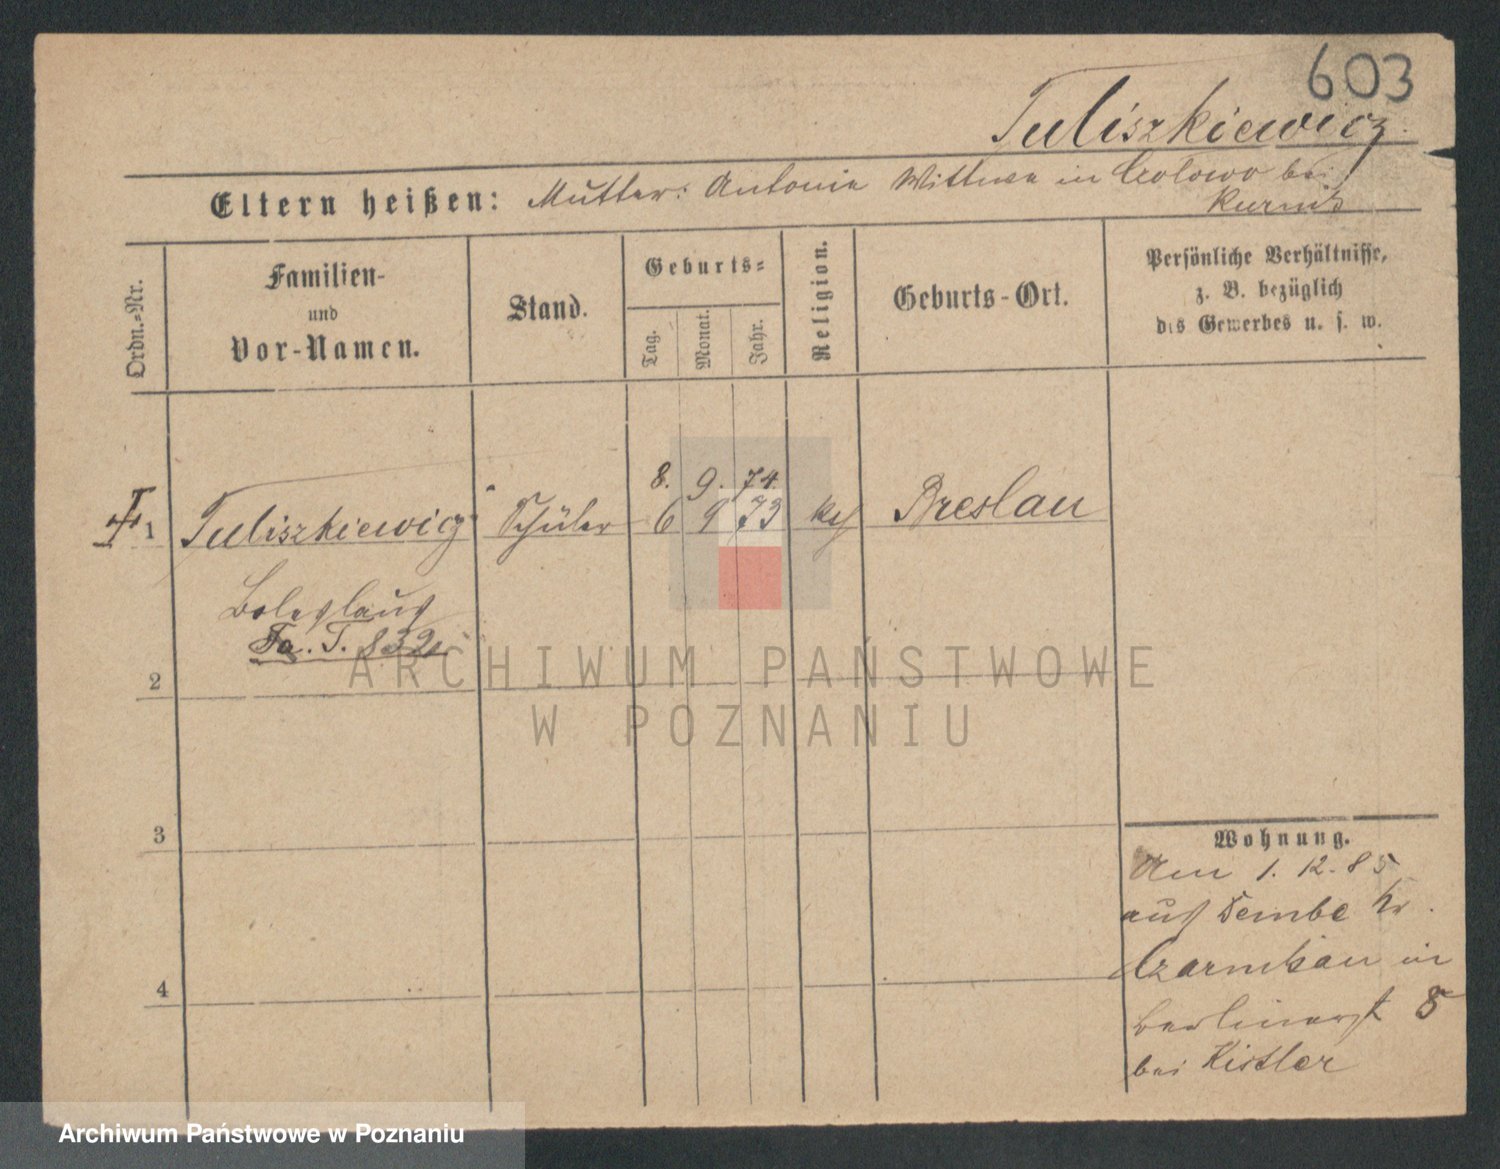 603
Tuliszkiewicz.
Eltern heißen: Mutter: Antonie Wittwe in Czolowo bei
Kurnik
Ordn.-Nr.
Familien-
und
Vor-Namen.
Stand.
Geburts-
Tag.
Monat.
Jahr.
Religion.
Geburts-Ort.
Persönliche Verhältnisse,
z. B. bezüglich
des Gewerbes u. s. w.
8. 9. 74.
1 Tuliszkiewicz Schüler 6 9 73 kth Breslau
Boleslaus
Fa. T. 832
2
3
4
Wohnung.
Am 1. 12. 85
aus Dembe Kr.
Czarnikau in
Berlinerst 5
bei Kistler
ARCHIWUM PAŃSTWOWE
W POZNANIU
Archiwum Państwowe w Poznaniu